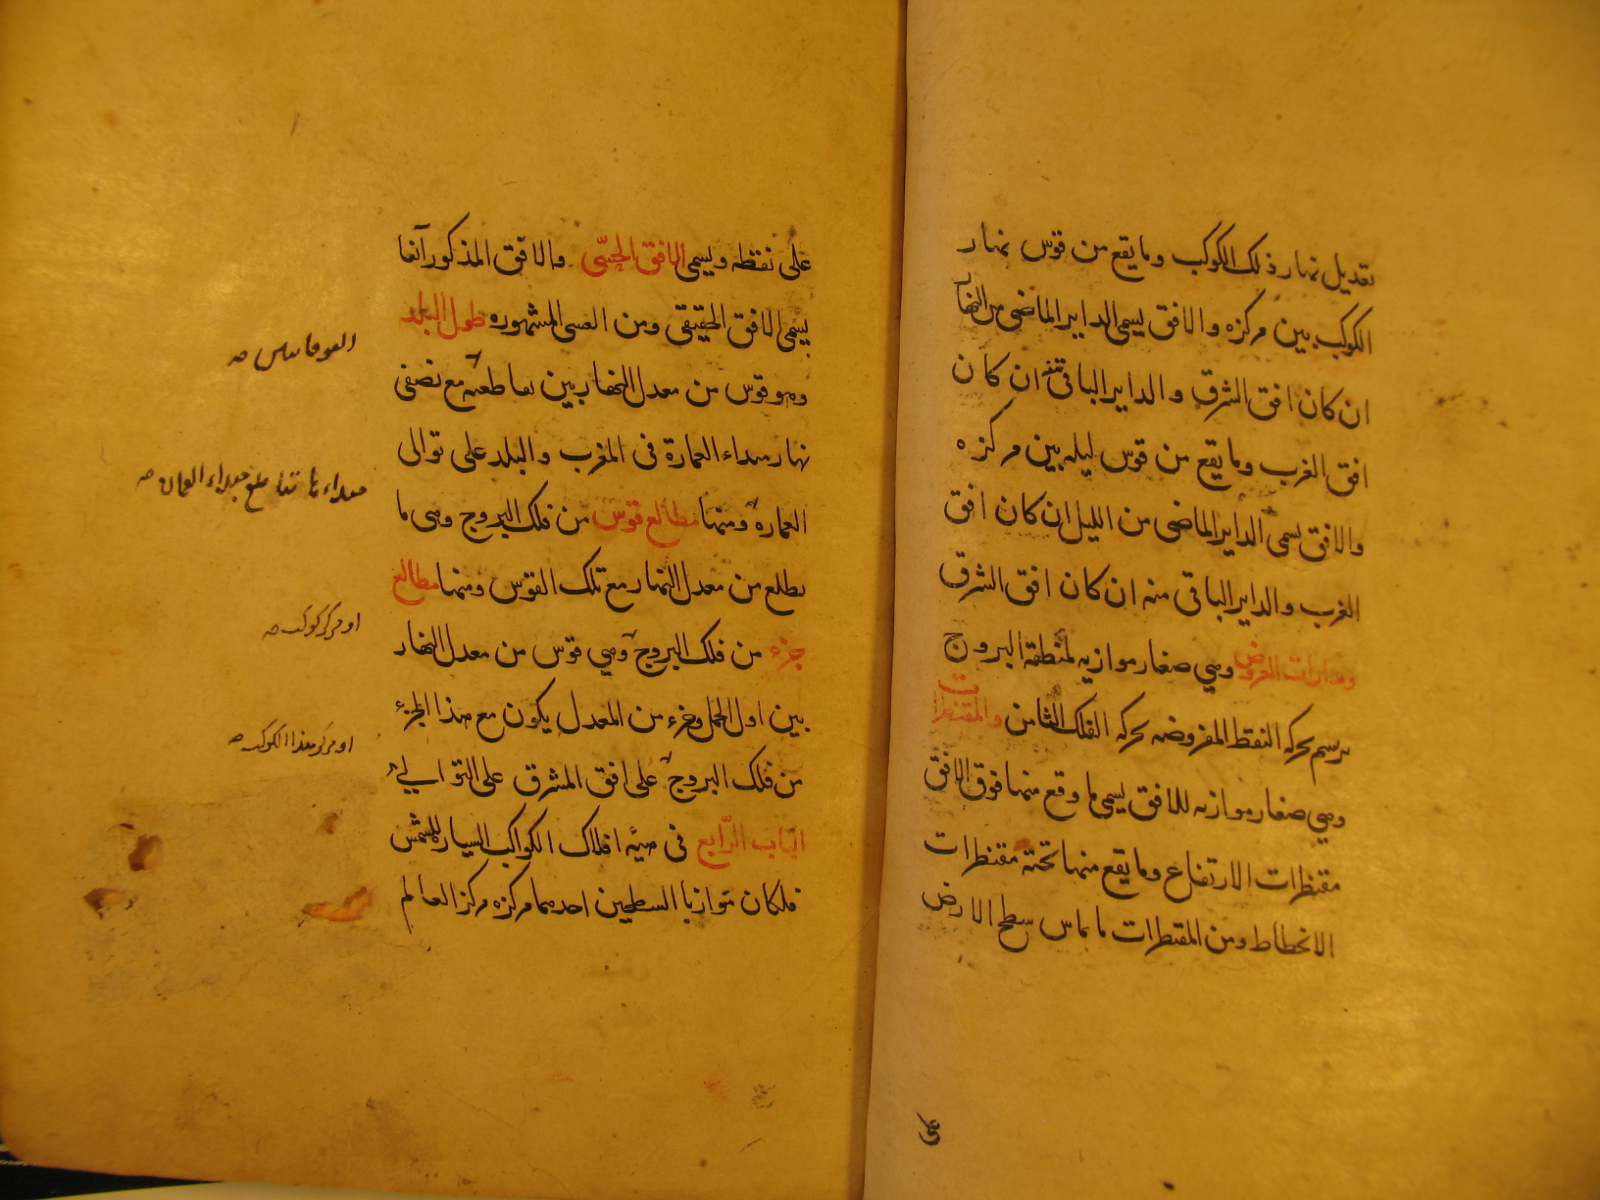 تعديل نهار ذلك الكوكب وما يقع من قوس نهار
الكوكب بين مركزه والافق يسمى الداير الماضى من النهار
ان كان افق الشرق والداير الباقى منه ان كان
افق الغرب وما يقع من قوس ليله بين مركزه
والافق يسمى الداير الماضى من الليل ان كان افق
الغرب والداير الباقى منه ان كان افق الشرق
ومدارات العروض وهي صغار موازيه لمنطقة البروج
يرسم بحركه النقط المفروضه بحركه الفلك الثامن والمقنطرات
وهي صغار موازيه للافق يسمى ما وقع منها فوق الافق
مقنطرات الارتفاع وما يقع منها تحته مقنطرات
الانحطاط ومن المقنطرات ما يماس سطح الارض
على
على نقطه ويسمى الافق الحسّى والافق المذكور آنفا
يسمى الافق الحقيقى ومن القسى المشهوره طول البلد
وهو قوس من معدل النهار بين تقاطعه مع نصفى
نهار مبداء العمارة فى المغرب والبلد على توالى
العماره ومنها مطالع قوس من فلك البروج وهى ما
يطلع من معدل النهار مع تلك القوس ومنها مطالع
جزء من فلك البروج وهي قوس من معدل النهار
بين اول الحمل وجزء من المعدل يكون مع هذا الجزء
من فلك البروج على افق المشرق على التوالي
الباب الرّابع فى هيئه افلاك الكواكب السياره للشمس
فلكان متوازيا السطحين احدهما مركزه مركز العالم
او مركز كوكب صه
او مركز هذا الكوكب صه